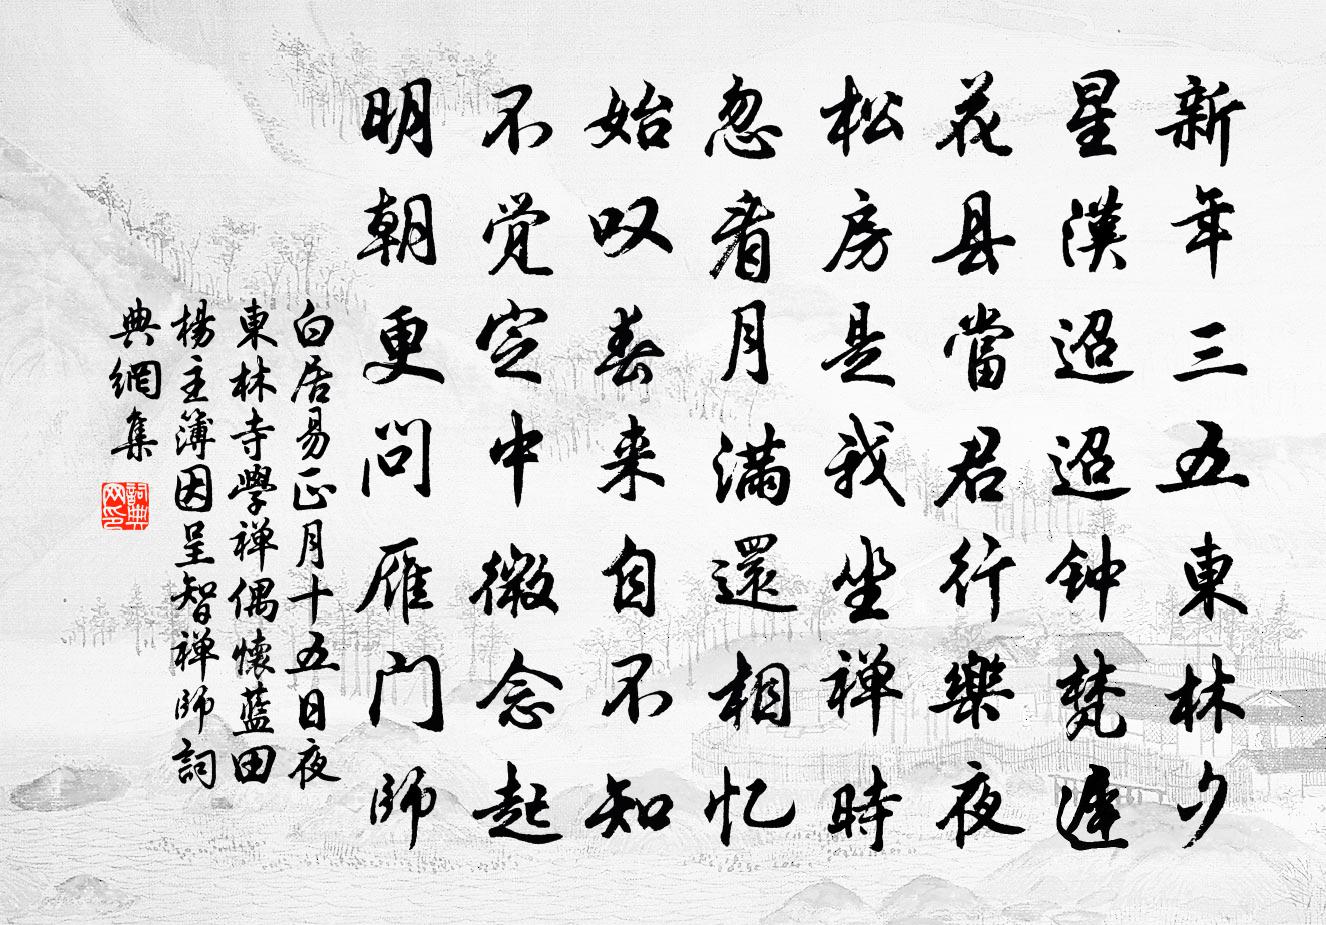 新年三五東林夕
星漢迢迢钟梵遲
花县當君行樂夜
松房是我坐禅時
忽看月满還相忆
始叹春来自不知
不觉定中微念起
明朝更问雁门師
白居易正月十五日夜
東林寺學禅偶懷藍田
楊主簿因呈智禅師詞
典網集
詞典网印